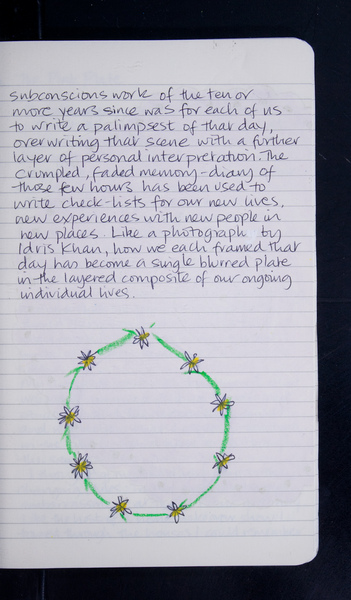 subconscious work of the ten or
more years since was for each of us
to write a palimpsest of that day,
overwriting that scene with a further
layer of personal interpretation. The
crumpled, faded memory-diary of
those few hours has been used to
write check-lists for our new lives,
new experiences with new people in
new places. Like a photograph by
Idris Khan, how we each framed that
day has become a single blurred plate
in the layered composite of our ongoing
individual lives.